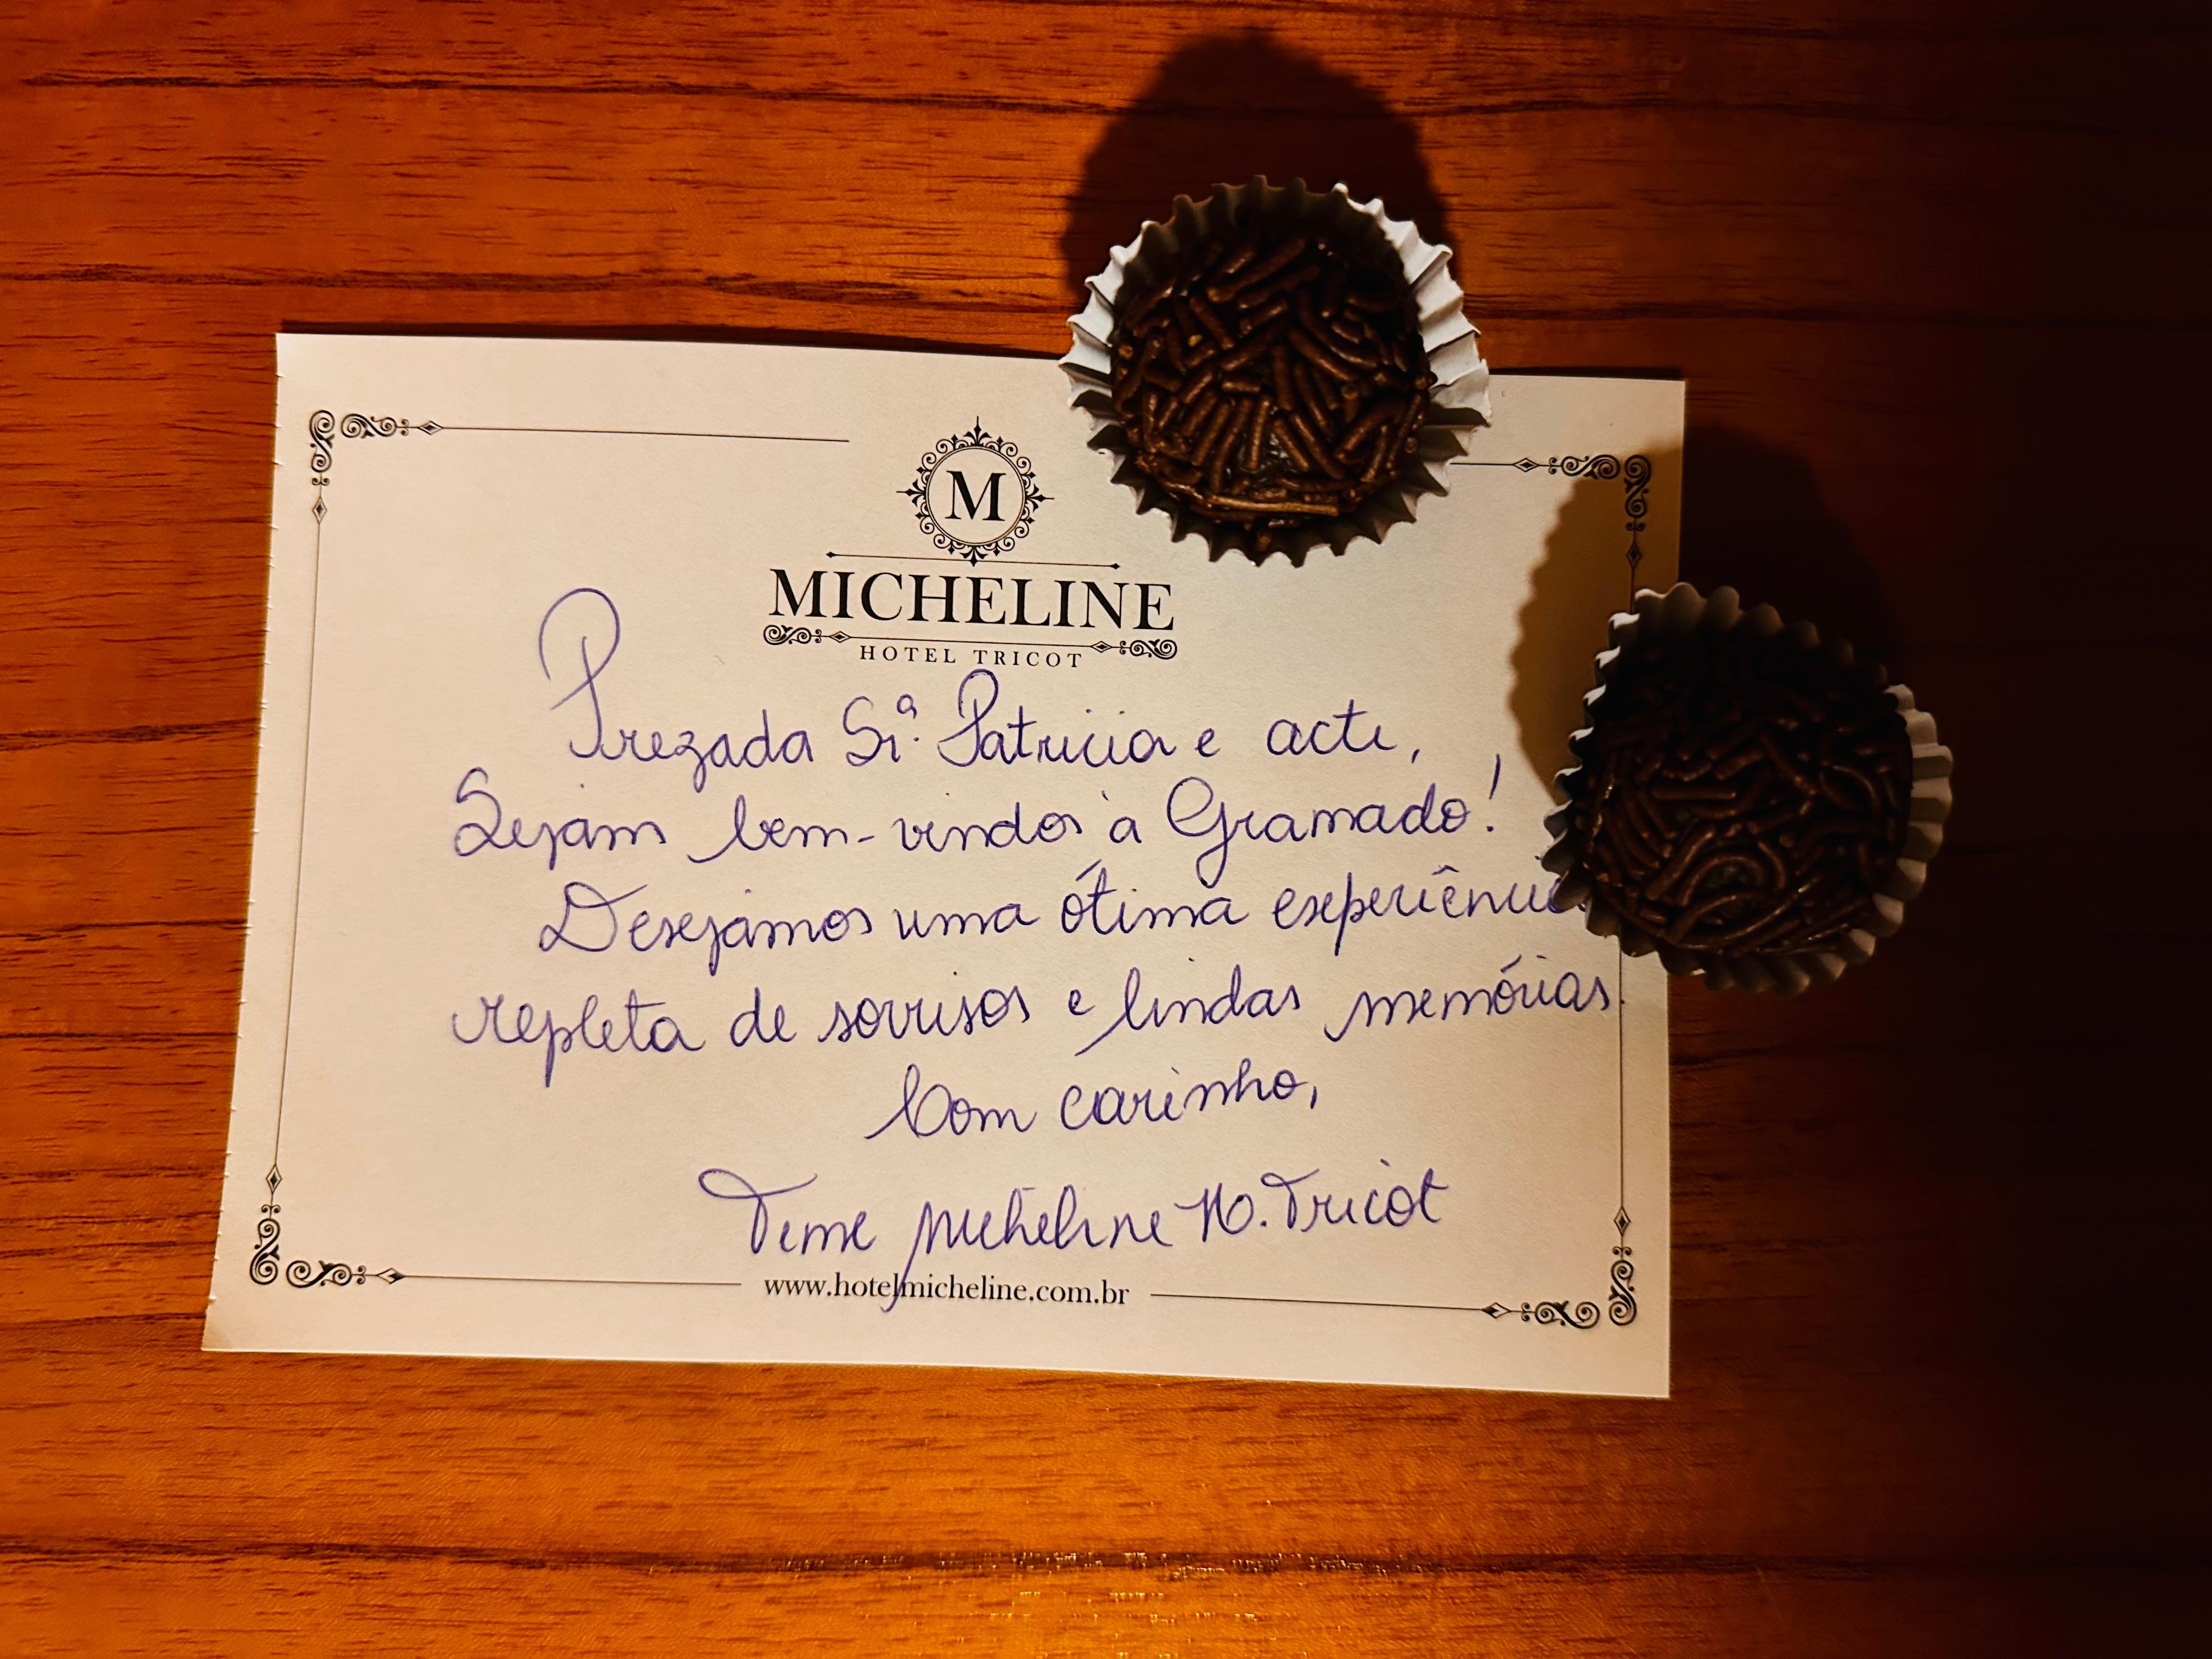 M
MICHELINE
HOTEL TRICOT
Prezada Srª. Patricia e acte,
Sejam bem-vindos à Gramado!
Desejamos uma ótima experiência
repleta de sorrisos e lindas memórias.
Com carinho,
Time Micheline H. Tricot
www.hotelmicheline.com.br